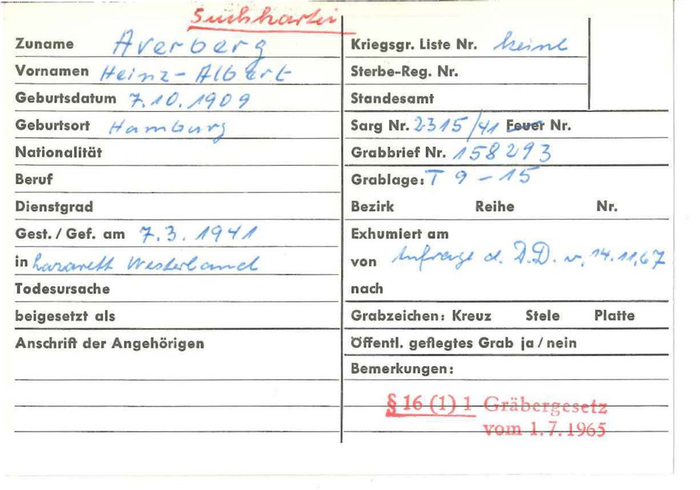 Suchkartei
Zuname Averberg
Vornamen Heinz-Albert
Geburtsdatum 7.10.1909
Geburtsort Hamburg
Nationalität
Beruf
Dienstgrad
Gest. / Gef. am 7.3.1941
in Lazarett Westerland
Todesursache
beigesetzt als
Anschrift der Angehörigen
Kriegsgr. Liste Nr. keine
Sterbe-Reg. Nr.
Standesamt
Sarg Nr. 2315/41 Feuer Nr.
Grabbrief Nr. 158293
Grablage: T 9-15
Bezirk Reihe Nr.
Exhumiert am
von Anfrage d. D.D. v. 14.11.67
nach
Grabzeichen: Kreuz Stele Platte
Öffentl. gepflegtes Grab ja / nein
Bemerkungen:
§ 16 (1) 1 Gräbergesetz
vom 1.7.1965